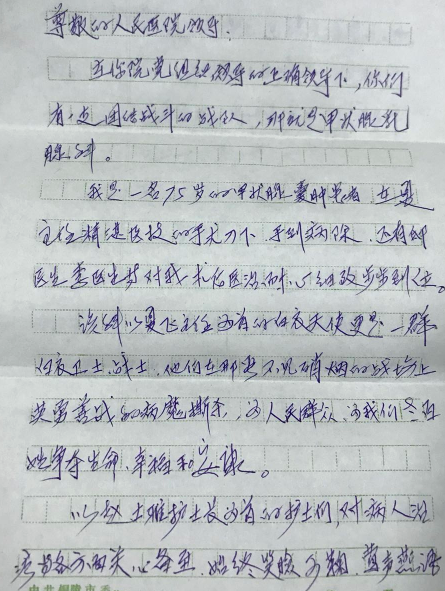 尊敬的人民医院领导:
在你院党组织领导的正确领导下,你们
有一支团结战斗的战队,那就是甲状腺乳
腺科。
我是一名75岁的甲状腺囊肿患者,在夏
主任精湛医技的手术刀下,手到病除,还有
医生 医生等对我术后医治 细致步步到位。
该科以夏飞主任为首的白衣天使更是一群
白衣卫士、战士,他们在那些不见硝烟的战场上
英勇善战的病魔撕杀,为人民群众、为我们患者
始争夺生命、幸福和安康。
以赵 护士长为首的护士们,对病人治
疗等各方面关心备至,始终笑脸 ,莺声燕语
中共铜陵市委